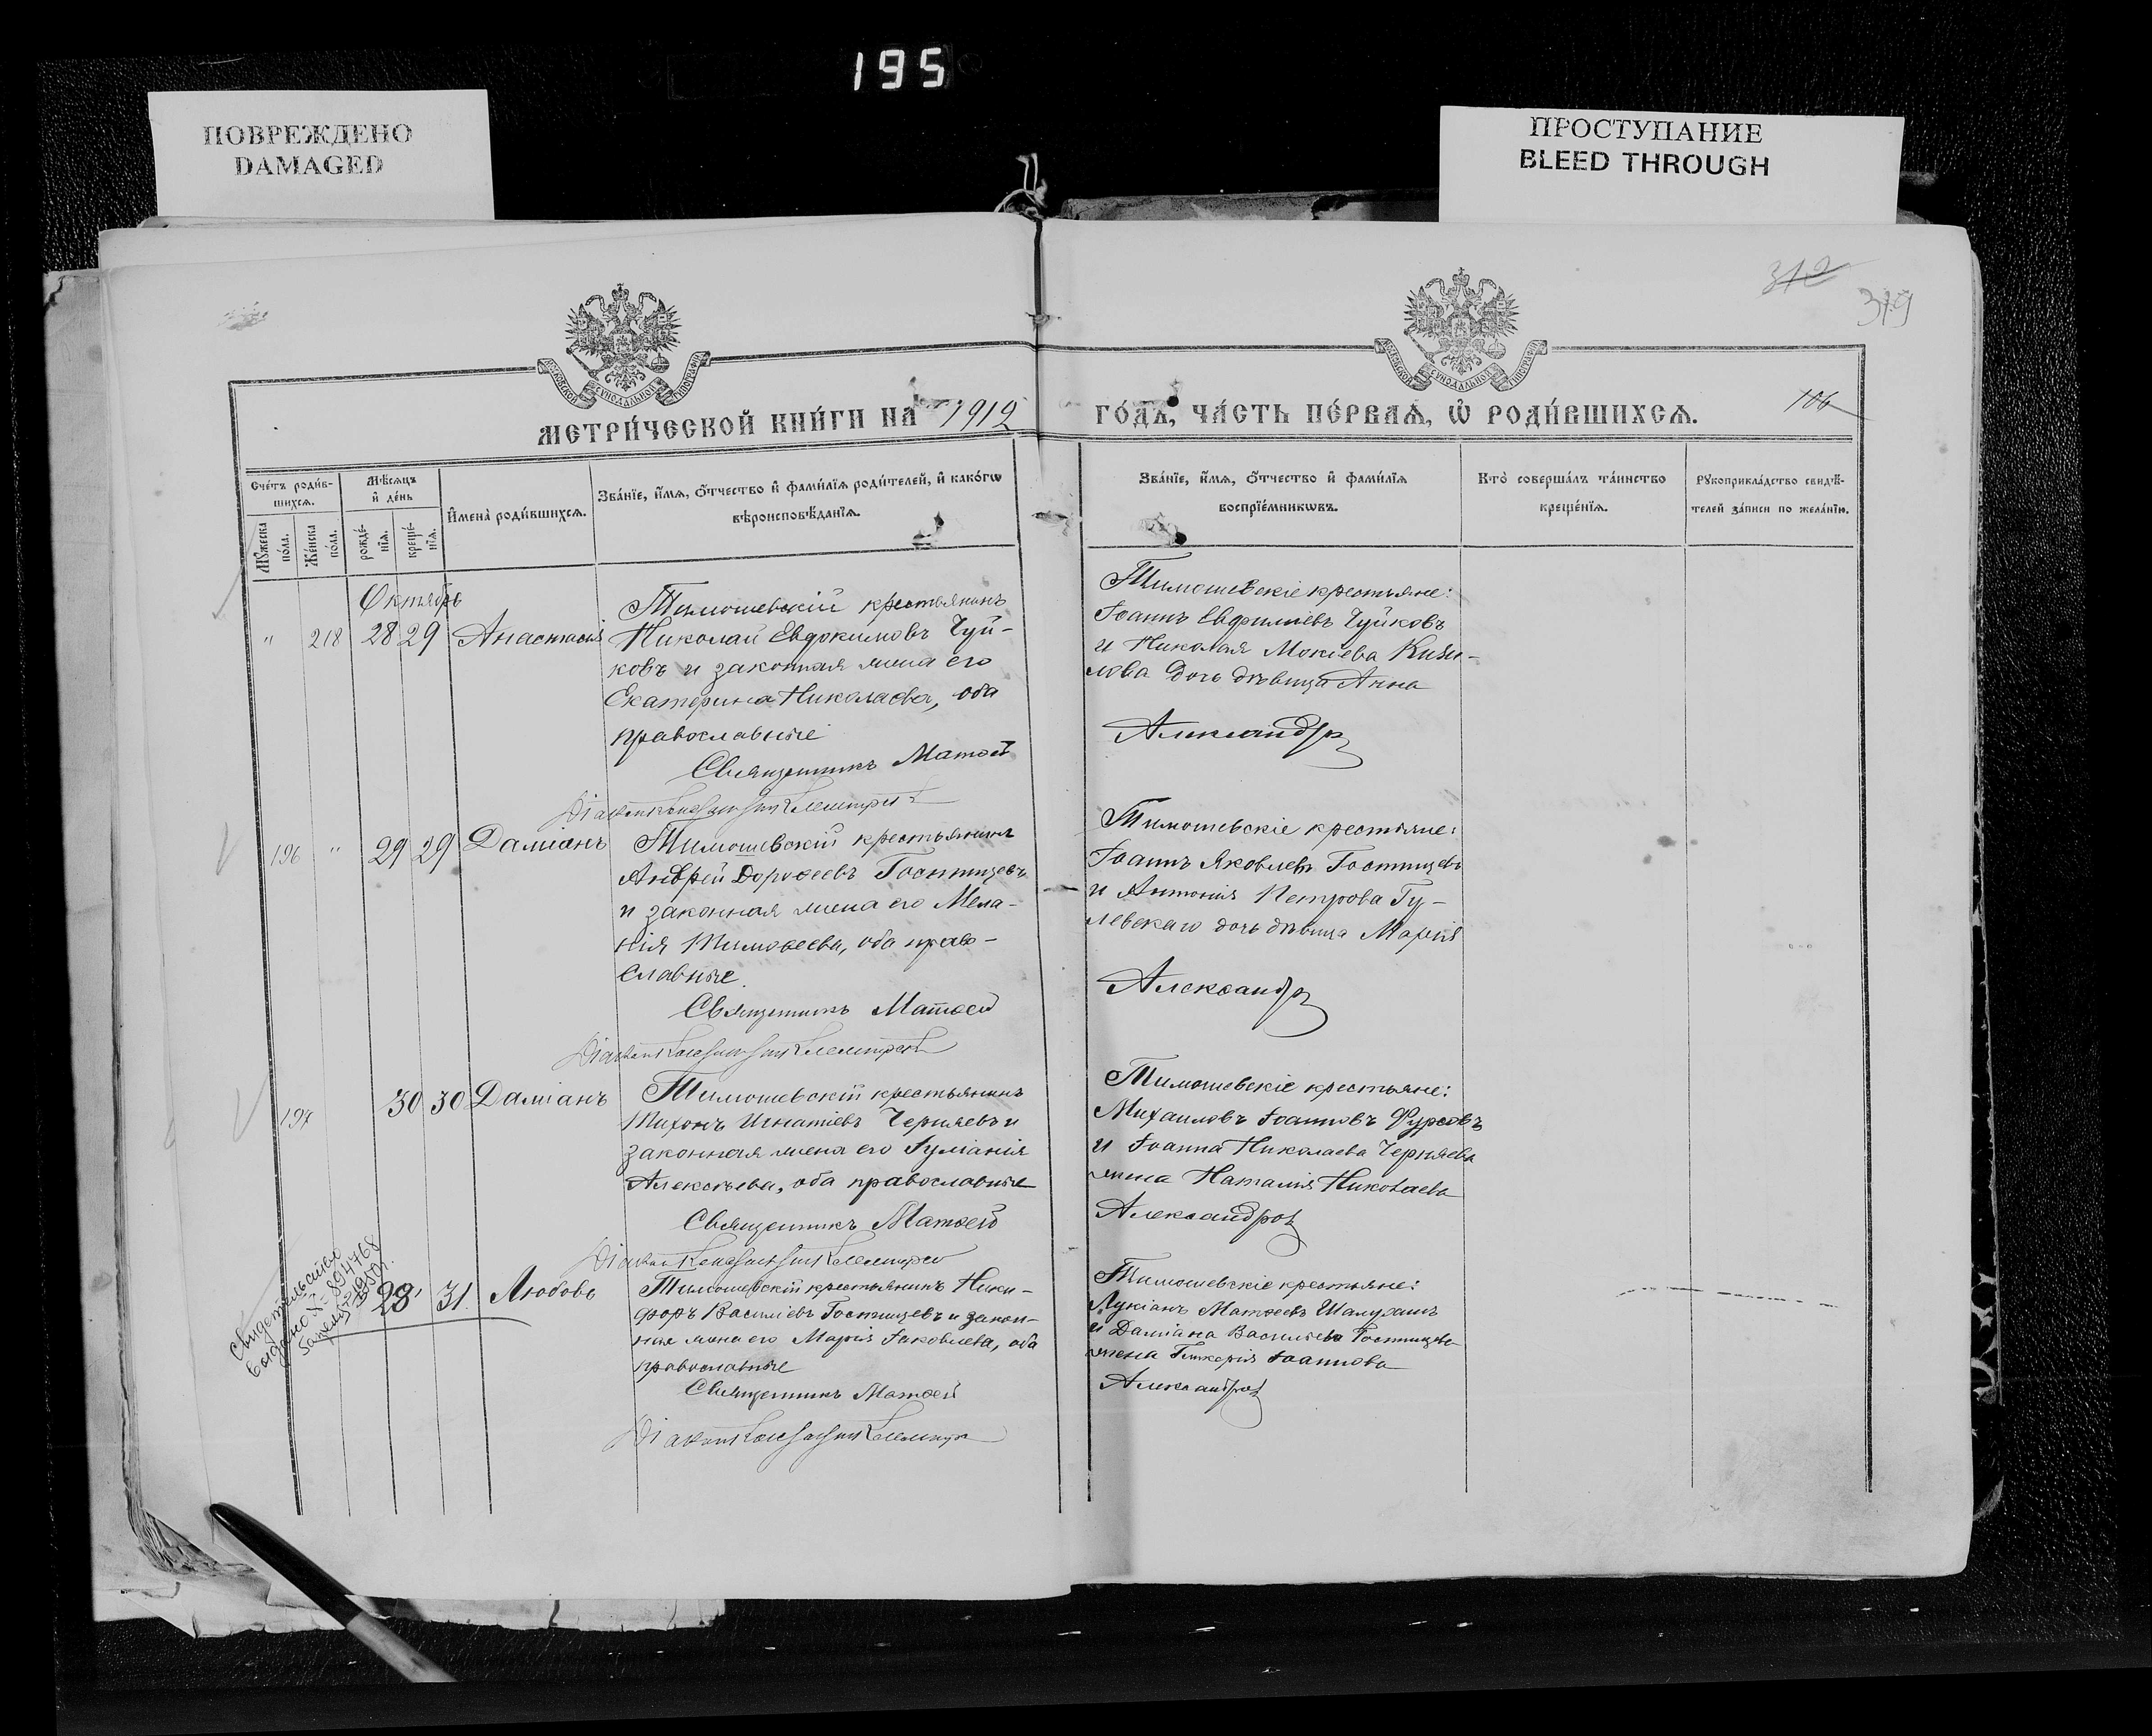 195
ПОВРЕЖДЕНО
DAMAGED
ПРОСТУПАНИЕ
BLEED THROUGH
312
319
106
МЕТРИ́ЧЕСКОЙ КНИ́ГИ НА 1912
ГО́ДЪ, ЧА́СТЬ ПЕ́РВАѦ, Ѡ҆ РОДИ́ВШИХСѦ.
Сче́тъ роди́в-
шихсѧ.
Мꙋ́жеска
по́ла.
Же́нска
по́ла.
Мѣ́сѧцъ
и҆ де́нь
рожде́-
нїѧ.
креще́-
нїѧ.
И҆мена̀ роди́вшихсѧ.
Зва́нїе, и҆́мѧ, ѻ҆́тчество и҆ фами́лїѧ роди́телей, и҆ како́гѡ
вѣроисповѣ́данїѧ.
Зва́нїе, и҆́мѧ, ѻ҆́тчество и҆ фами́лїѧ
воспрїе́мникѡвъ.
Кто̀ соверша́лъ та́инство
креще́нїѧ.
Рꙋкоприкла́дство свидѣ́-
телей за́писи по жела́нїю.
Октябрь
" 218 28 29 Анастасія
Тимошевскій крестьянинъ
Николай Евдокимовъ Чуй-
ковъ и законная жена его
Екатерина Николаева, оба
православные
Священникъ Матѳей
Діаконъ
Тимошевскіе крестьяне:
Іоаннъ Евфиміевъ Чуйковъ
и Николая Мокіева Кизи-
лова дочь дѣвица Анна
Александр
196 " 29 29 Даміанъ
Тимошевскій крестьянинъ
Андрей Дороѳеевъ Гостищевъ
и законная жена его Мела-
нія Тимоѳеева, оба право-
славные.
Священникъ Матѳей
Діаконъ
Тимошевскіе крестьяне:
Іоаннъ Яковлевъ Гостищевъ
и Антонія Петрова Гу-
левскаго дочь дѣвица Марія
Александр
197 30 30 Даміанъ
Тимошевскій крестьянинъ
Тихонъ Игнатіевъ Черняевъ и
законная жена его Іуліанія
Алексѣева, оба православные
Священникъ Матѳей
Діаконъ
Тимошевскіе крестьяне:
Михаиловъ Іоанновъ Фурсовъ
и Іоанна Николаева Черняева
жена Наталія Николаева
Александров
Свидетельство
выдано № 894768
1950 г.
28 31 Любовь
Тимошевскій крестьянинъ Ники-
форъ Василіевъ Гостищевъ и закон-
ная жена его Марія Іаковлева, оба
православные
Священникъ Матѳей
Діаконъ
Тимошевскіе крестьяне:
Лукіанъ Матѳеевъ
и Даміана Василіева Гостищева
жена Гликерія Іоаннова
Александров